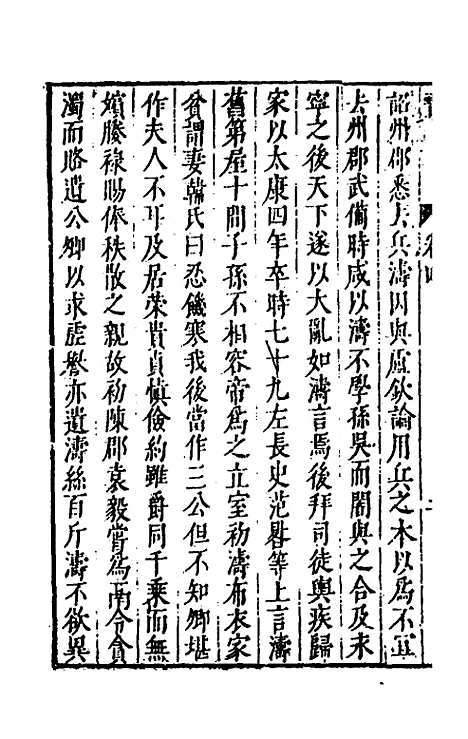 詔州郡悉去兵濤因與盧欽論用兵之本以爲不宜
去州郡武備時咸以濤不學孫吳而闇與之合及永
寧之後天下遂以大亂如濤言焉後拜司徒輿疾歸
家以太康四年卒時七十九左長史范晷等上言濤
舊第屋十間子孫不相容帝爲之立室初濤布衣家
貧謂妻韓氏曰忍饑寒我後當作三公但不知卿堪
作夫人不耳及居榮貴貞慎儉約雖爵同千乘而無
嬪媵祿賜俸秩散之親故初陳郡袁毅嘗爲鬲令貪
濁而賂遺公卿以求虛譽亦遺濤絲百斤濤不欲異
卷四